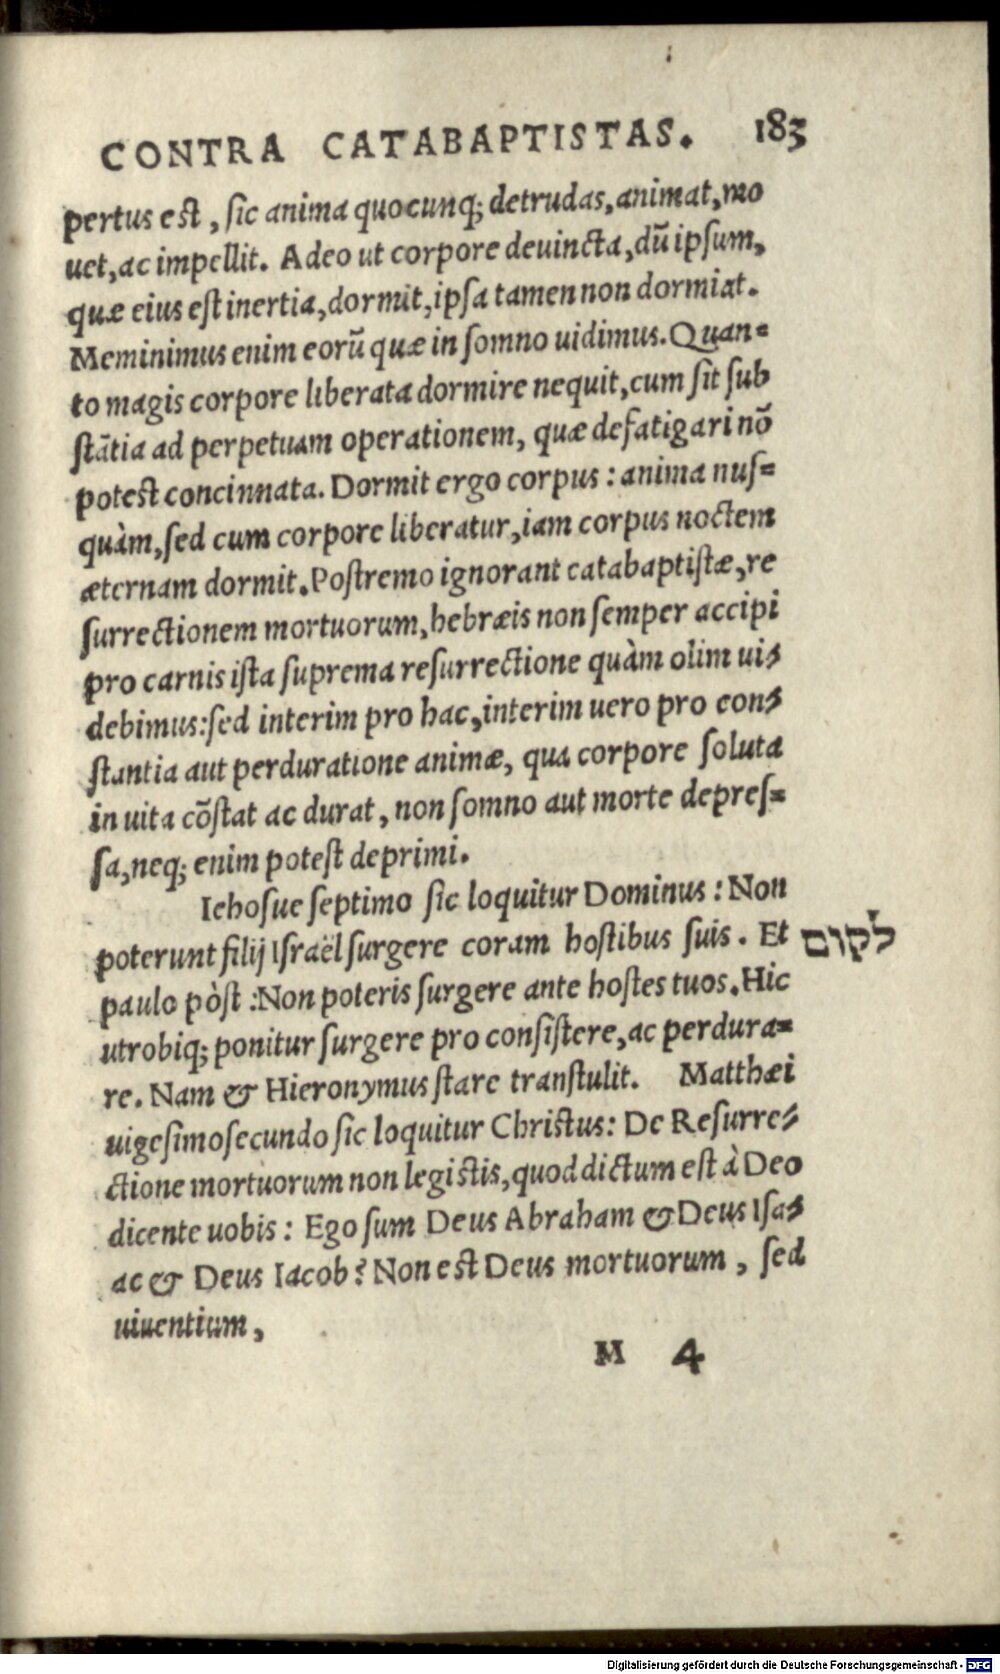 CONTRA CATABAPTISTAS. 183
pertus est, sic anima quocunq; detrudas, animat, mo
uet, ac impellit. Adeo ut corpore deuincta, dũ ipsum,
quæ eius est inertia, dormit, ipsa tamen non dormiat.
Meminimus enim eorũ quæ in somno uidimus. Quan=
to magis corpore liberata dormire nequit, cum sit sub
stãtia ad perpetuam operationem, quæ defatigari nõ
potest concinnata. Dormit ergo corpus: anima nus=
quàm, sed cum corpore liberatur, iam corpus noctem
æternam dormit. Postremo ignorant catabaptistæ, re
surrectionem mortuorum, hebræis non semper accipi
pro carnis ista suprema resurrectione quàm olim ui=
debimus: sed interim pro hac, interim uero pro con=
stantia aut perduratione animæ, qua corpore soluta
in uita cõstat ac durat, non somno aut morte depres=
sa, neq; enim potest deprimi.
Iehosue septimo sic loquitur Dominus: Non
poterunt filij Israël surgere coram hostibus suis. Et לקום
paulo pòst: Non poteris surgere ante hostes tuos. Hic
utrobiq; ponitur surgere pro consistere, ac perdura=
re. Nam & Hieronymus stare transtulit. Matthæi
uigesimosecundo sic loquitur Christus: De Resurre=
ctione mortuorum non legistis, quod dictum est à Deo
dicente uobis: Ego sum Deus Abraham & Deus Isa=
ac & Deus Iacob? Non est Deus mortuorum, sed
uiuentium,
M 4
Digitalisierung gefördert durch die Deutsche Forschungsgemeinschaft - DFG